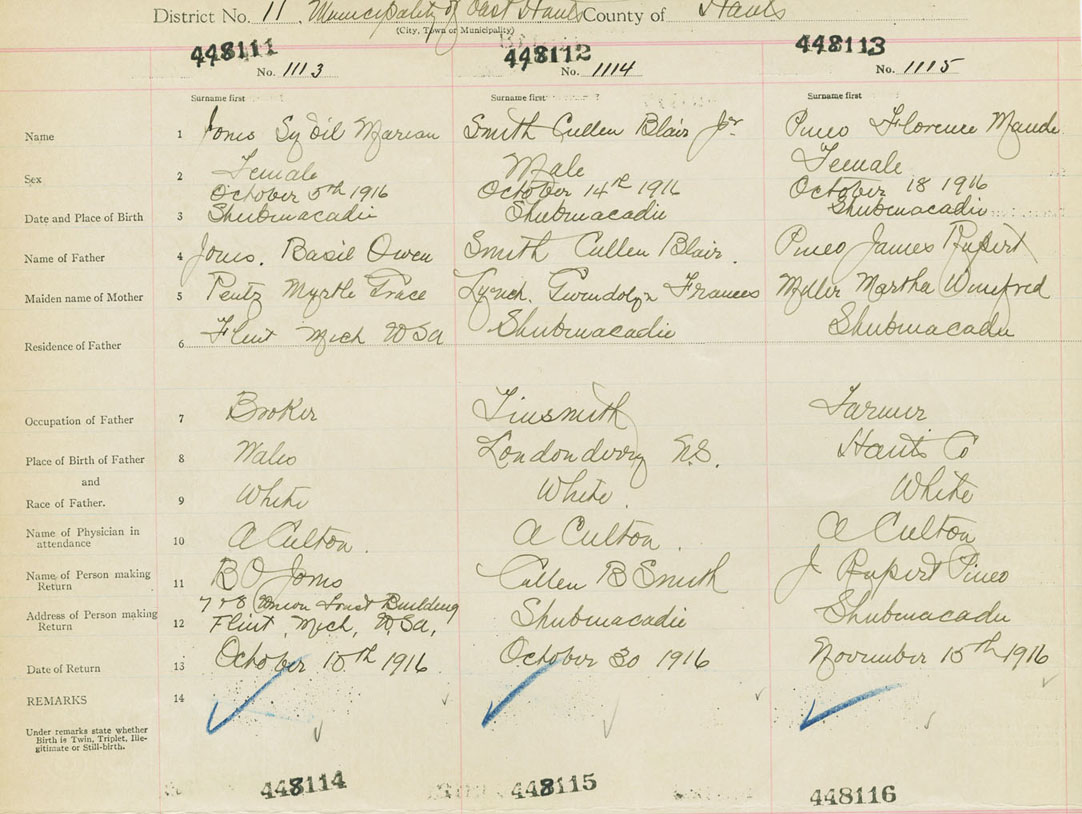 District No. 11, Municipality of East Hants County of Hants
(City, Town or Municipality)
448111 448112 448113
No. 1113 No. 1114 No. 1115
Surname first Surname first Surname first
Name 1 Jones Sybil Marian Smith Cullen Blair Jr. Pineo Florence Maude
Sex 2 Female Male Female
October 5th 1916 October 14th 1916 October 18 1916
Date and Place of Birth 3 Shubenacadie Shubenacadie Shubenacadie
Name of Father 4 Jones, Basil Owen Smith Cullen Blair. Pineo James Rupert
Maiden name of Mother 5 Pentz Myrtle Grace Lynch, Gwendolyn Frances Miller Martha Winifred
Residence of Father 6 Flint Mich USA Shubenacadie Shubenacadie
Occupation of Father 7 Broker Tinsmith Farmer
Place of Birth of Father 8 Wales Londonderry N.S. Hants Co
and
Race of Father. 9 White White. White
Name of Physician in
attendance 10 A Culton. A Culton. A Culton
Name of Person making
Return 11 B O Jones Cullen B Smith J Rupert Pineo
Address of Person making 7 & 8 Union Trust Building
Return 12 Flint, Mich, USA, Shubenacadie Shubenacadie
Date of Return 13 October 10th 1916 October 30 1916 November 15th 1916
REMARKS 14
Under remarks state whether
Birth is Twin, Triplet, Ille-
gitimate or Still-birth.
448114 448115 448116